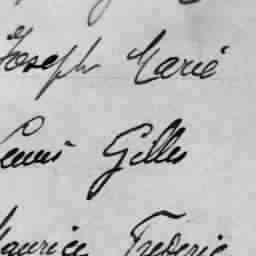 Joseph Marié
Louis Gilles
Maurice Frederic